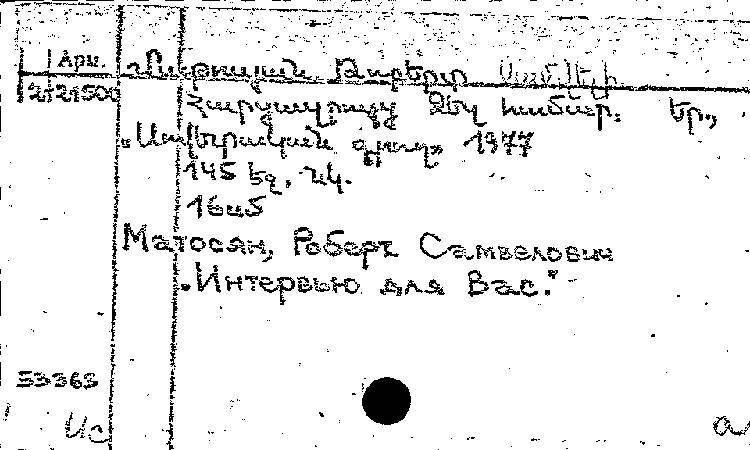 Арм. Մաթոսյան Ռոբերտ Սամվելի
2121500 Հարցազրույց Ձեզ համար. Եր.,
«Սովետական գրող» 1977
145 էջ, նկ.
16սմ
Матосян, Роберт Самвелович
„Интервью для Вас.”
53363